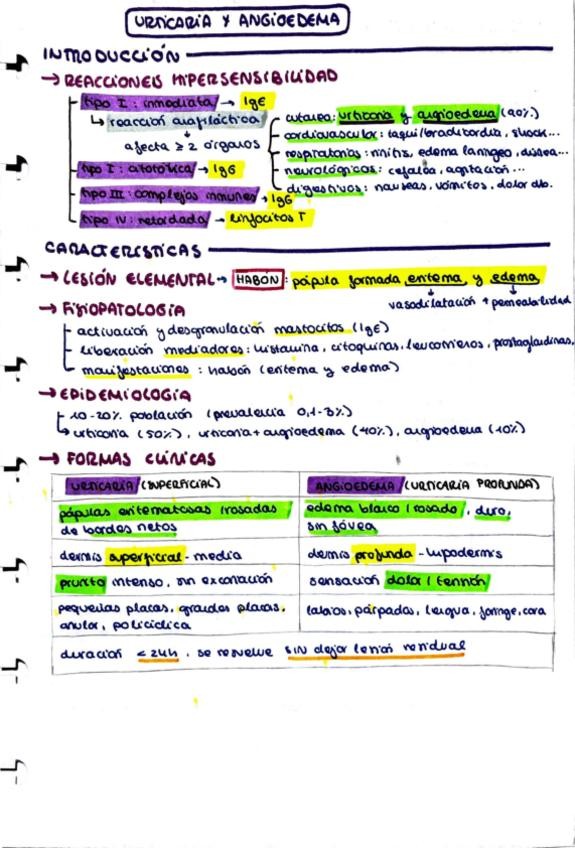 URTICARIA Y ANGIOEDEMA
INTRODUCCIÓN
→ REACCIONES HIPERSENSIBILIDAD
tipo I: inmediata → IgE
↳ reacción anafiláctica
↓
afecta ≥ 2 órganos
cutáneo: urticaria y angioedema (90%)
cardiovascular: taqui/bradicardia, shock...
respiratorios: rinitis, edema laríngeo, disnea...
neurológicos: cefalea, agitación...
digestivos: nauseas, vómitos, dolor abo.
tipo I: citotóxica → IgG
tipo III: complejos inmunes → IgG
tipo IV: retardada → linfocitos T
CARACTERÍSTICAS
→ LESIÓN ELEMENTAL → HABON: pápula formada eritema y edema
vasodilatación + permeabilidad
→ FISIOPATOLOGIA
activación y desgranulación mastocitos (IgE)
liberación mediadores: histamina, citoquinas, leucotrienos, prostaglandinas,
manifestaciones: habón (eritema y edema)
→ EPIDEMIOLOGÍA
10-20% población (prevalencia 0,1-3%)
↳ urticaria (50%), urticaria + angioedema (40%), angioedema (10%)
→ FORMAS CLÍNICAS
URTICARIA (SUPERFICIAL)
ANGIOEDEMA (URTICARIA PROFUNDA)
pápulas eritematosas / rosadas
de bordes netos
edema blanco / rosado, duro,
sin fóvea
dermis superficial - media
dermis profunda - hipodermis
prurito intenso, sin excoriación
sensación dolor / tensión
pequeñas placas, grandes placas,
anular, policíclica
labios, párpados, lengua, faringe, cara
duración < 24h, se resuelve SIN dejar lesión residual